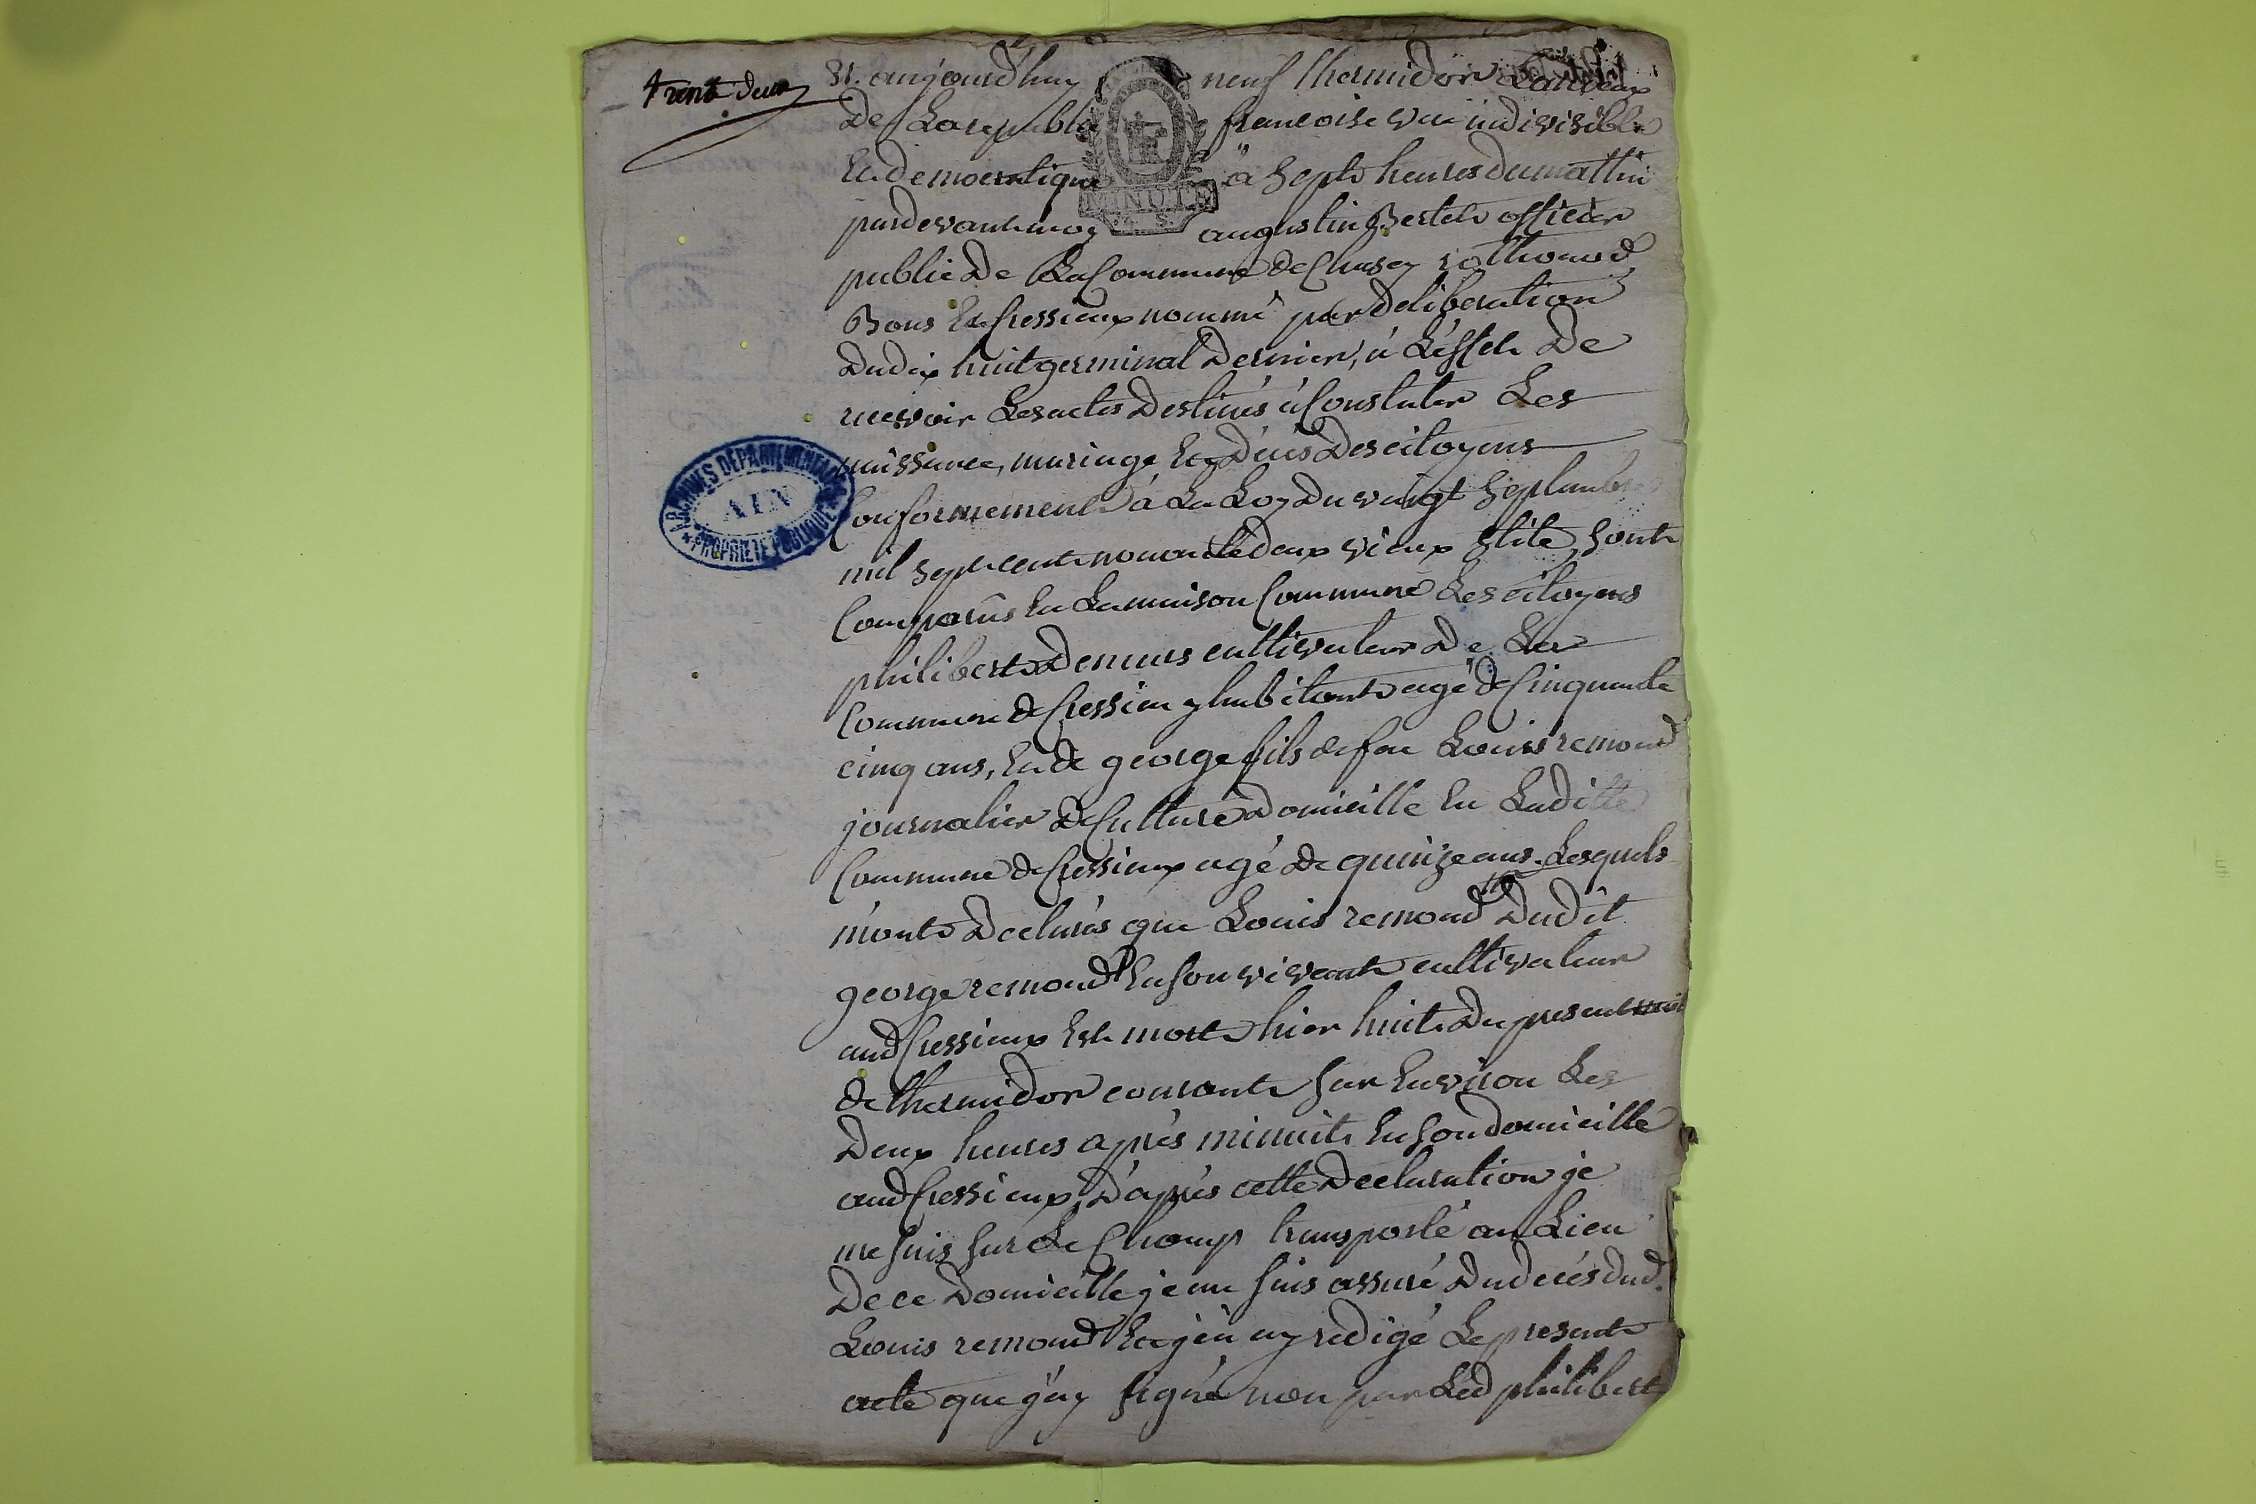 trente deux
31. aujourd'huy neuf thermidor L'an deux
De La republi francoise une indivisible
Et democratique à Septe heures du mattin
pardevant moy augustin Bertet officier
public de La Commune de Chasey rothonod
Bons Et Cressieux nommé par deliberation
du dix huit germinal dernier, à L'effet De
recevoir Les actes Destinés à Constater Les
naissance, mariage Et Décés Des citoyens
Conformement à La Loy du vingt Septembre
mil Sept cent nonante deux vieux Stile, Sont
Comparus En La maison Commune Les citoyens
philibert Demurs cultivateur De La
Commune de Cressieu y habitant agé de Cinquante
cinq ans, Et de george fils de feu Louis remond
journalier de Culture Domicille En Laditte
Commune de Cressieux agé De quinze ans. Lesquels
m'ont Declarés que Louis remond Dudit
george remond En Son vivant cultivateur
aud Cressieux Est mort hier huit Du present mois
de thermidor courant Sur Environ Les
Deux heures après minuit En Son domicille
aud Cressieux, D'après cette Declaration je
me Suis Sur Le Champ transporté au Lieu
De ce Domicille je me Suis assuré Du decés dud.
Louis remond Et j'en ay redigé Le present
acte que j'ay Signé non par Led philibert
MINUTE
ARCHIVES DEPARTEMENTALES
AIN
PROPRIETE PUBLIQUE